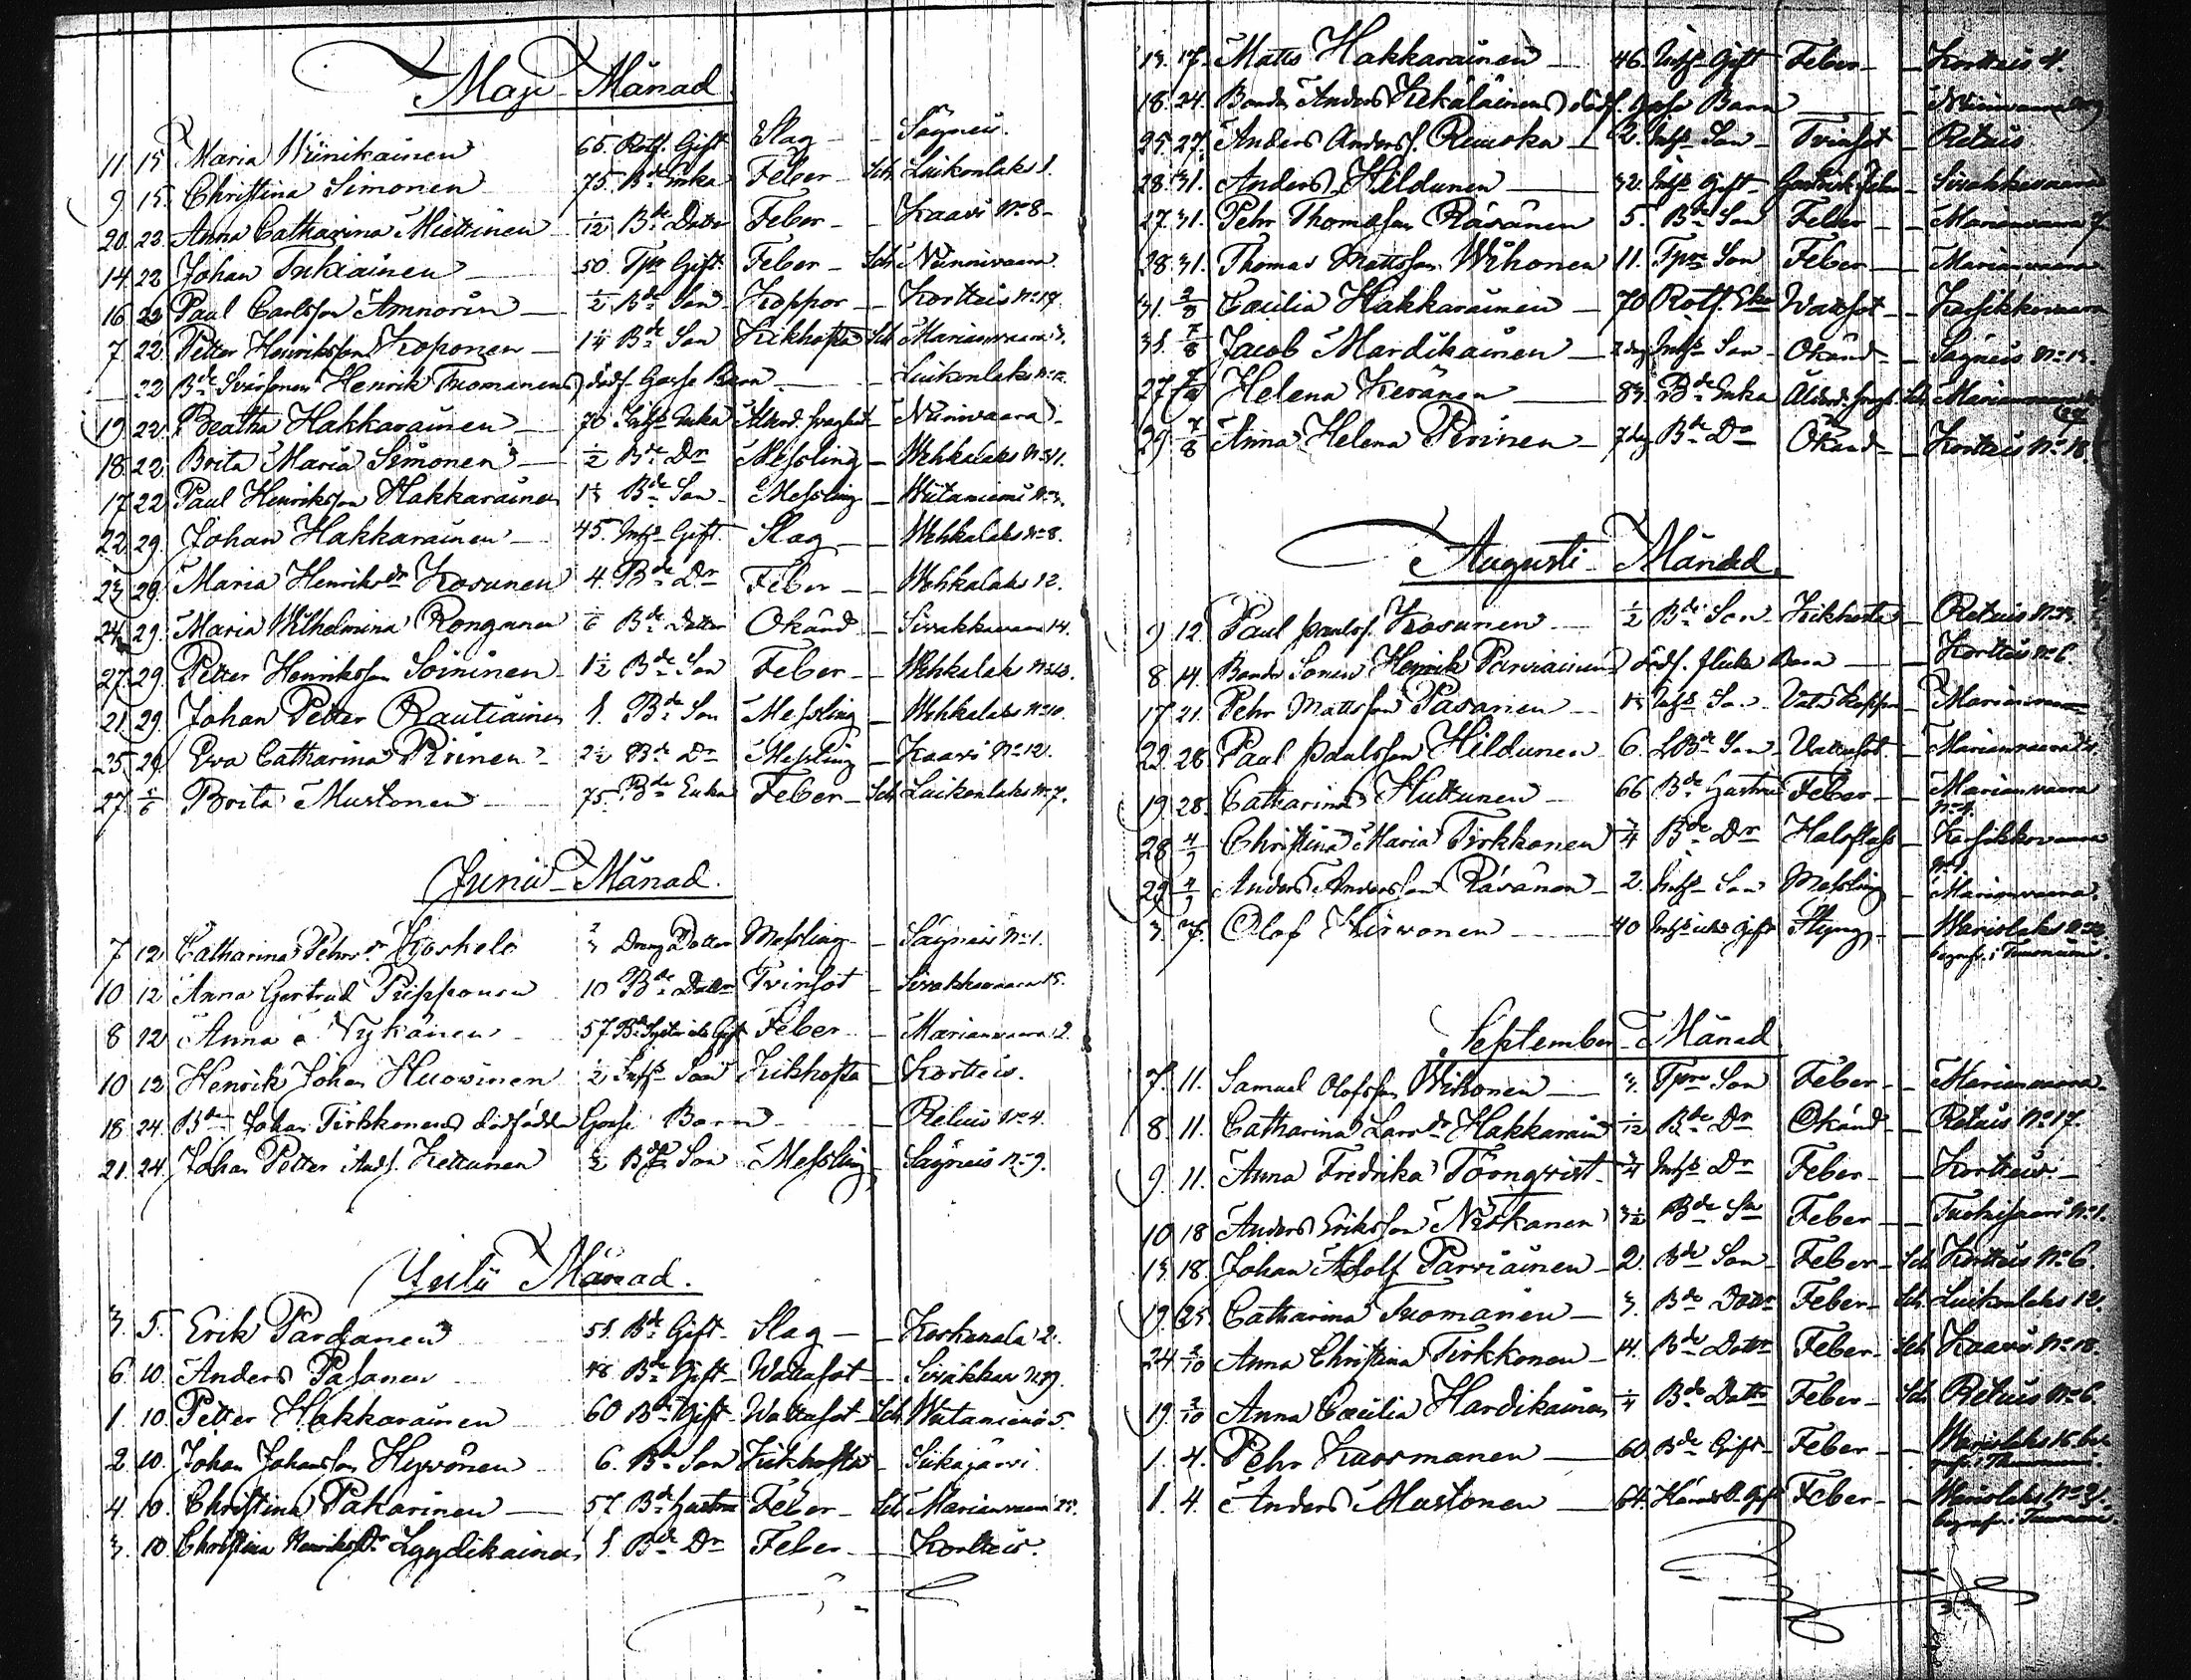 Maji Månad.
11 15 Maria Wänikainen 65. Rotf. Gift Slag Sägneis.
9 15. Christina Simonen 75. Bde Enka Feber Sch Luikonlaks 1.
20. 22 Anna Catharina Miettinen 1/12 Bde Dotter Feber Kaavi No 8
14. 22 Johan Inkiäinen 50. Tpr Gift. Feber Sch Niinivaara.
16 22 Paul Carlsson Amnorin 1/2 Bde Son Koppor Kortteis No 17.
7 22 Petter Henriksson Koponen 1 1/4 Bde Son Kikhosta Sch Marianvaara
22 Bde Svärsonen Henrik Tuomanens dödf. Gosse Barn Luikonlaks No 12.
19 22 Beatha Hakkarainen 70 Inhs Enka Ålderd. svaghet Niinivaara
18 22 Brita Maria Simonen 1/2 Bde Dr Messling Wehkalaks No 11.
17 22 Paul Henriksson Hakkarainen Bde Son Messling Wiitaniemi No 3.
22 29. Johan Hakkarainen 45. Inhs Gift. Slag Wehkalaks No 8.
23 29 Maria Henriksdr Kosunen 4. Bde Dr Feber Wehkalaks 12.
24 29. Maria Wilhelmina Ronganen 1/6 Bde Dotter Okänd Sivakkavaara 14.
27. 29. Petter Henriksson Soininen 1 1/2 Bde Son Feber Wehkalak
21. 29. Johan Petter Rautiainen 1. Bde Son Messling Wehkalaks No 10.
25 29 Eva Catharina Pirinen 2 1/2 Bde Dr Messling Kaavi No 12.
27. 1/6 Brita Mustonen 75. Bde Enka Feber Sch Luikonlaks No 7.
Junii Månad.
7 12 Catharina Pehrsdr Koskelo Dräng Dotter Messling Sägneis No 1.
10 12 Anna Gertrud Pripponen 10 Bde Dotter Tvinsot Sivakkavaara 15.
8 12 Anna Nykänen 57 Bde Syster icke Gift Feber Marianvaara 2.
10 12 Henrik Johan Huovinen 1/2 Inhs Son Kikhosta Kortteis.
18 24. Bde Johan Tirkkonens dödfödda Gosse Barn Retuis No 4.
21. 24. Johan Petter Andf. Kettunen 1/2 Bde Son Messling Sägneis No 9.
Julii Månad.
3. 5. Erik Pardanen 51. Bde Gift Slag Koskenala 2.
6 10. Anders Pasanen 48 Bde Gift Wattusot Sivakkav
1. 10. Petter Hakkarainen 60 Bde Gift Wattusot Sch Wiitaniemi 5.
2. 10. Johan Johansson Hyvönen 6. Bde Son Kikhosta Siikajärvi
4. 10. Christina Pakarinen 57. Bde Hustru Feber Sch Marianvaara 22.
3. 10. Christina Henriksdr Lyydikainen 1. Bde Dr Feber Kortteis.
13. 17. Matts Hakkarainen 46. Inhs Gift Feber Kortteis 4.
18. 24. Bonden Anders Kekäläinens dödf. Gosse Barn Niinivaara
25. 27. Anders Andersf. Ruuska 2. Inhs Son Tvinsot Retuis
28. 31. Anders Hildunen 32. Inhs Gift Gastrisk Feber Sivakkavaara
27. 31. Pehr Thomasson Räsänen 5. Bde Son Feber Marianvaara 7.
28. 31. Thomas Mattsson Wihonen 11. Tprs Son Feber Marianvaara
31. 2/8 Cæcilia Hakkarainen 70 Rotf. Eka Wattusot Karsikkovaara
31. 7/8 Jacob Mardikainen 2 dag Inhs Son Okänd Sägneis No 13.
27. 7/8 Helena Keränen 83. Bde Enka Ålderd. svagh. Sch Marianvaara
29. 7/8 Anna Helena Pirinen 7 dg Bde Dr Okänd Kortteis No 18.
Augusti Månad.
9 12. Paul Paulsf. Kosunen 1/2 Bde Son Kikhosta Retuis
8. 14. Bonde Sonen Henrik Parviainens dödf. flicke Barn Kortteis No 6.
17. 21. Pehr Mattsson Pasanen Inhs Son Vatn Koppor Marianvaara
22. 28 Paul Paulsson Hildunen 6. Bde Son Vattusot Marianvaara
19. 28. Catharina Huttunen 66 Bde Hustru Feber Marianvaara No 4.
28 4/9 Christina Maria Tirkkonen 3/4 Bde Dr Halsfluss Karsikkovaara
29. 4/9 Anders Andersson Räsänen 2. Inhs Son Messling Marianvaara.
3. Olof Hirvonen 40 Inhs icke Gift Styng Warislaks
begrafv. i Tuusniemi.
September Månad
7. 11. Samuel Olofsson Wihonen 3. Tprs Son Feber Marianvaara.
8. 11. Catharina Larsdr Hakkarain 1/12 Bde Dr Okänd Retuis No 17.
9. 11. Anna Fredrika Törnqvist 3/4 Inhs Dr Feber Kortteis.
10 18 Anders Eriksson Niskanen 3 1/2 Bde Son Feber Tuohisaari No 1.
13. 18. Johan Adolf Parviainen 2. Bde Son Feber Sch Kortteis No 6.
19. 25. Catharina Tuomanen 3. Bde Dotter Feber Sch Luikonlaks 12.
24 2/10 Anna Christina Tirkkonen 14. Bde Dottr Feber Sch Kaavi No 18
19. 2/10 Anna Cæcilia Hardikainen 1/4 Bde Dottr Feber Sch Retuis No 6.
1. 4. Pehr Kaasmanen 60. Bde Gift Feber Warislaks
1. 4. Anders Mustonen 64. Gift Feber Warislaks No 21.
begrafv. i Tuusniemi.